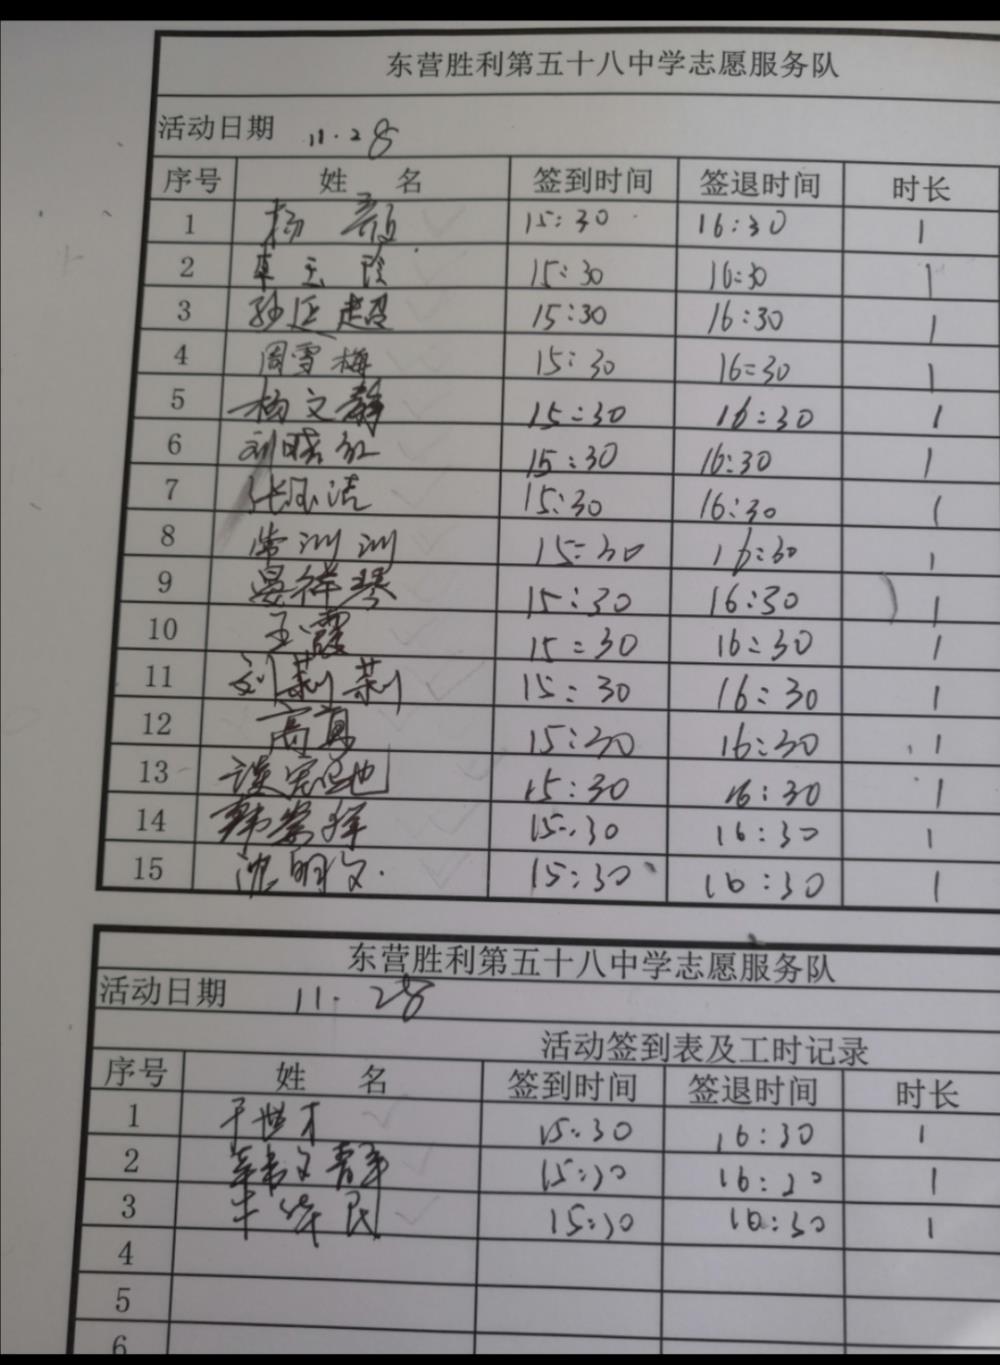 东营胜利第五十八中学志愿服务队
活动日期 11.28
序号 姓 名 签到时间 签退时间 时长
1 杨 15:30 16:30 1
2 15:30 16:30 1
3 孙廷超 15:30 16:30 1
4 周雪梅 15:30 16:30 1
5 杨文静 15:30 16:30 1
6 刘晓红 15:30 16:30 1
7 张洁 15:30 16:30 1
8 常训训 15:30 16:30 1
9 晏祥琴 15:30 16:30 1
10 王霞 15:30 16:30 1
11 刘莉莉 15:30 16:30 1
12 高真 15:30 16:30 1
13 谈 15:30 16:30 1
14 韩 15:30 16:30 1
15 沈明文 15:30 16:30 1
东营胜利第五十八中学志愿服务队
活动日期 11.28
活动签到表及工时记录
序号 姓 名 签到时间 签退时间 时长
1 于世才 15:30 16:30 1
2 15:30 16:30 1
3 民 15:30 16:30 1
4
5
6